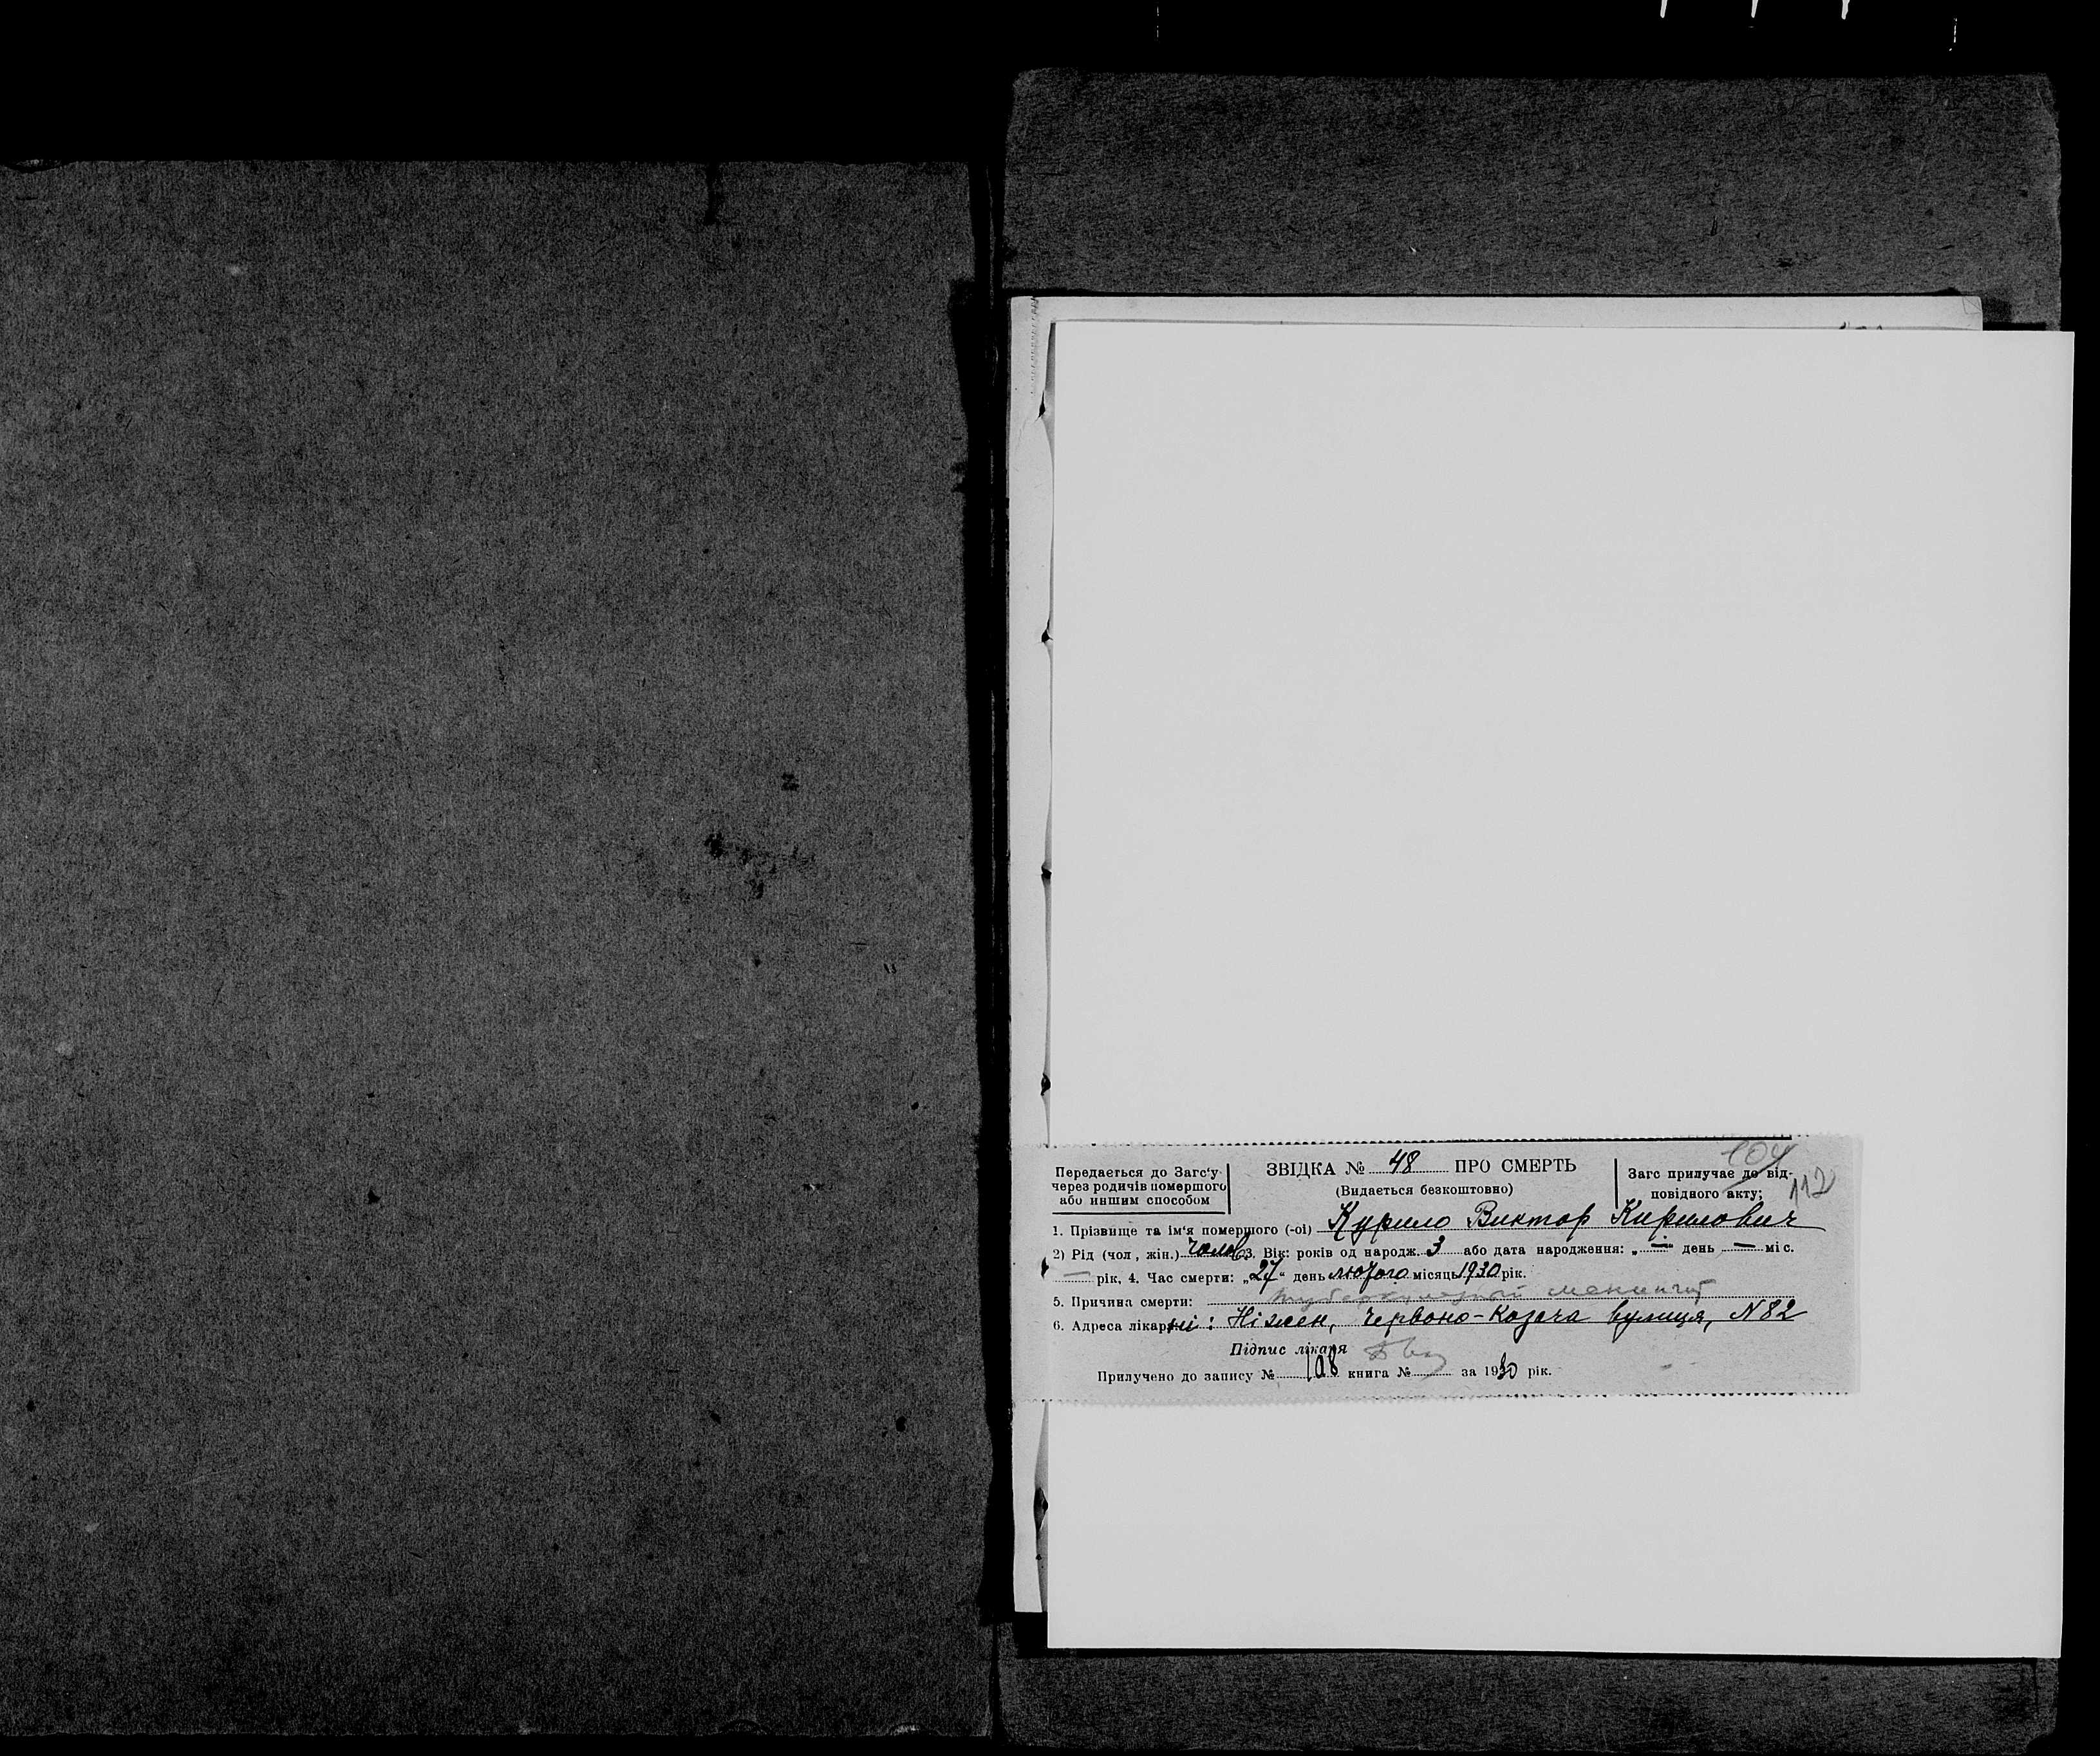 104
112
Передається до Загс'у через родичів помершого або иншим способом
ЗВІДКА № 48 ПРО СМЕРТЬ
(Видається безкоштовно)
Загс прилучає до відповідного акту;
1. Прізвище та ім'я помершого (-ої) Курило Виктор Кирилович
2) Рід (чол, жін.) Чолов. 3. Вік: років од народж. 3 або дата народження: „ — " день — міс.
— рік, 4. Час смерти: „27" день лютого місяць 1930 рік.
5. Причина смерти: туберкулезный менингит
6. Адреса лікарні: Ніжен, Червоно-Козача вулиця, N 82
Підпис лікаря
Прилучено до запису № 108 книга № за 1930 рік.